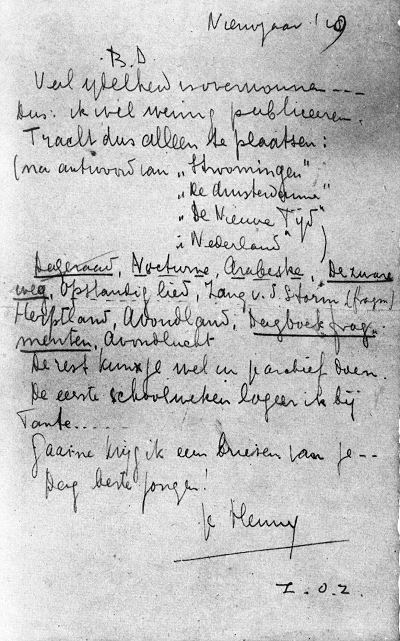 Nieuwjaar '19
B.D.
Veel ijdelheid is overwonnen ---
Dus: ik wil weinig publiceeren.
Tracht dus alleen te plaatsen:
(na antwoord van „Stroomingen"
„De Amsterdammer"
„De Nieuwe Tijd"
„Nederland")
Dageraad, Nocturne, Arabeske, De zware
weg, Opstandig lied, Zang v. d. Storm (fragm)
Herfstland, Avondland, Dagboekfrag-
menten, Avondlucht
De rest kun je wel in 't archief doen.
De eerste schoolweken logeer ik bij
Tante.....
Gaarne krijg ik een brief van je --
Dag beste jongen!
je Henny
Z.O.Z.